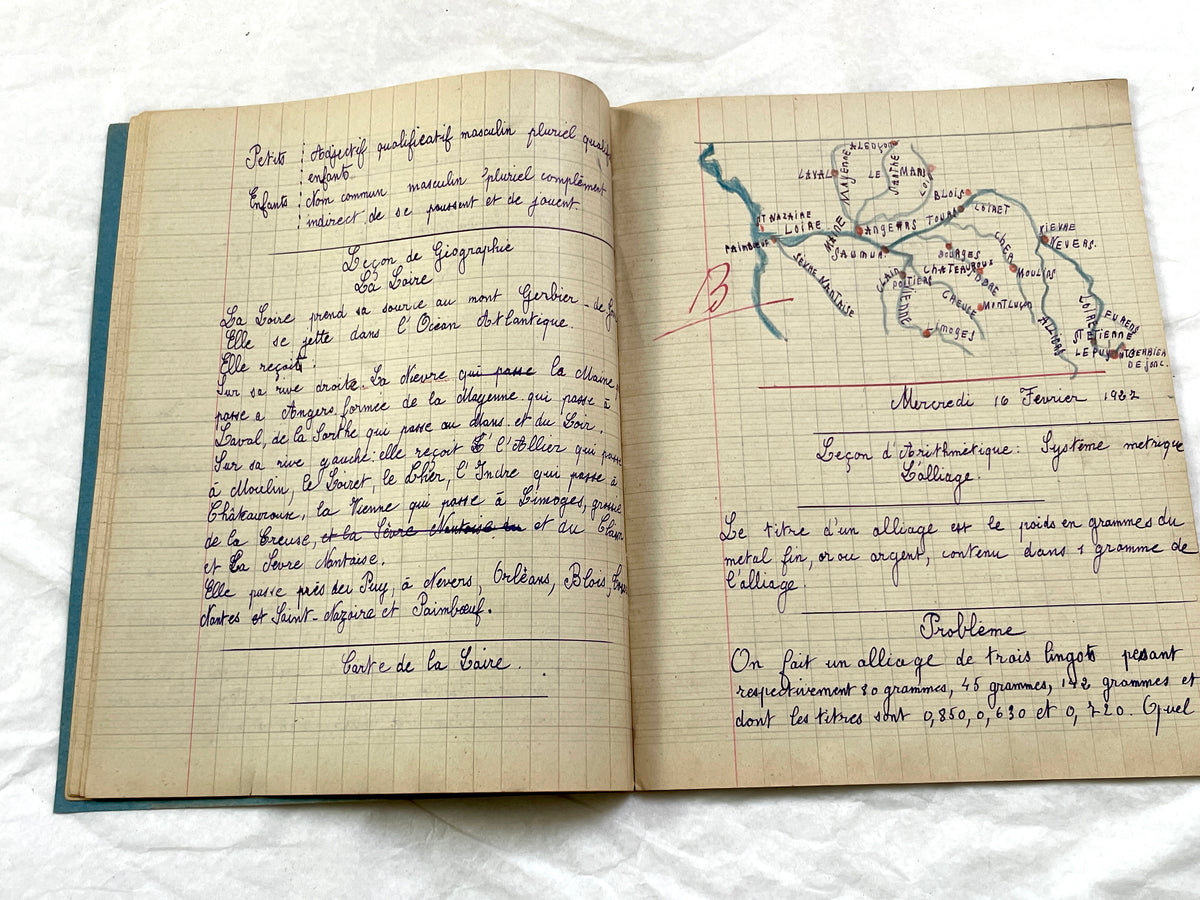 Petits : Adjectif qualificatif masculin pluriel
enfants.
Enfants : Nom commun masculin pluriel complément
indirect de se poussent et de jouent.
Leçon de Géographie
La Loire
La Loire prend sa source au mont Gerbier-de
Elle se jette dans l'Océan Atlantique.
Elle reçoit :
Sur sa rive droite. La Nièvre qui passe la Maine
passe a Angers formée de la Mayenne qui passe à
Laval, de la Sarthe qui passe au Mans. et du Loir.
Sur sa rive gauche elle reçoit l'Allier qui passe
à Moulin, le Loiret, le Cher, l'Indre qui passe à
Châteauroux, la Vienne qui passe à Limoges,
de la Creuse, et la Sèvre Nantaise et du
et La Sevre Nantaise.
Elle passe près du Puy, à Nevers, Orléans, Blois,
Nantes et Saint-Nazaire et Paimbœuf.
Carte de la Loire.
ALENÇON
LAVAL MAYENNE LE MANS SARTHE LOIR
BLOIS LOIRET
ST NAZAIRE LOIRE MAINE ANGERS TOURS
PAIMBŒUF SAUMUR BOURGES CHER NIEVRE
NEVERS.
SEVRE NANTAISE CLAIN POITIERS CHATEAUROUX INDRE MOULINS
VIENNE CREUSE MONTLUÇON
LIMOGES ALLIERS LOIRE
ST ETIENNE
LE PUY MONT GERBIER
DE JONC.
B
Mercredi 16 Février 1927
Leçon d'Arithmetique : Système metrique
L'alliage.
Le titre d'un alliage est le poids en grammes du
metal fin, or ou argent, contenu dans 1 gramme de
l'alliage.
Problème
On fait un alliage de trois lingots pesant
respectivement 80 grammes, 45 grammes, 142 grammes et
dont les titres sont 0,850, 0,630 et 0,720. Quel